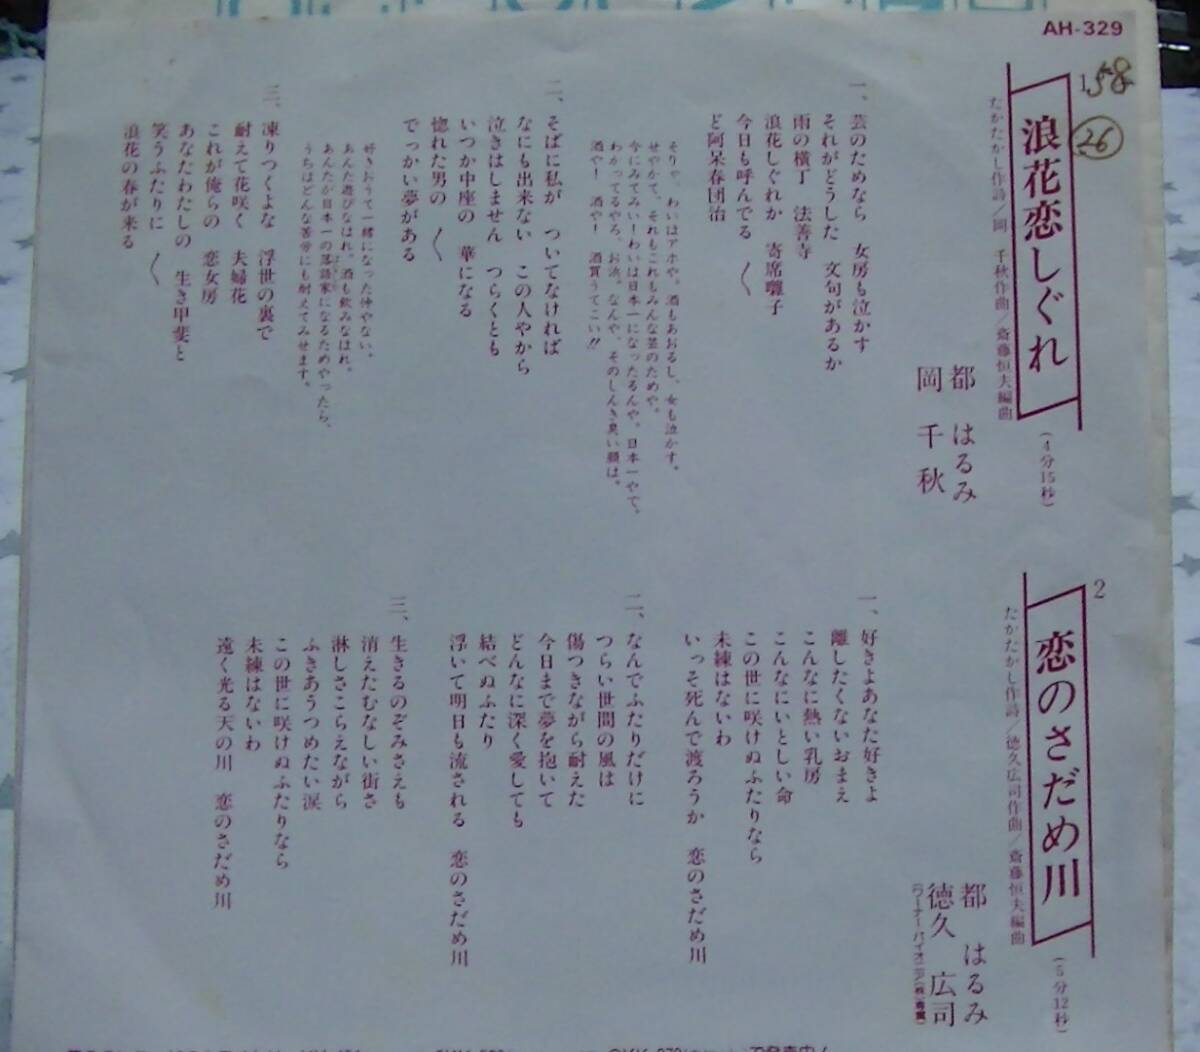 AH-329
158
26
浪花恋しぐれ
(4分15秒)
たかたかし作詩/岡 千秋作曲/斎藤恒夫編曲
都 はるみ
岡 千秋
一、芸のためなら 女房も泣かす
それがどうした 文句があるか
雨の横丁 法善寺
浪花しぐれか 寄席囃子
今日も呼んでる 〱
ど阿呆春団治
そりゃ、わいはアホや。酒もあおるし、女も泣かす。
せやかて、それもこれもみんな芸のためや。
今にみてみい!わいは日本一になったるんや。日本一やで。
わかってるやろ、お浜。なんや、そのしんき臭い顔は。
酒や! 酒や! 酒買うてこい!!
二、そばに私が ついてなければ
なにも出来ない この人やから
泣きはしません つらくとも
いつか中座の 華になる
惚れた男の 〱
でっかい夢がある
好きおうて一緒になった仲やない。
あんた遊びなはれ。酒も飲みなはれ。
あんたが日本一の落語家になるためやったら、
うちはどんな苦労にも耐えてみせます。
三、凍りつくよな 浮世の裏で
耐えて花咲く 夫婦花
これが俺らの 恋女房
あなたわたしの 生き甲斐と
笑うふたりに 〱
浪花の春が来る
2
恋のさだめ川
(5分12秒)
たかたかし作詩/徳久広司作曲/斎藤恒夫編曲
都 はるみ
徳久 広司
(ワーナー・パイオニア(株)専属)
一、好きよあなた好きよ
離したくないおまえ
こんなに熱い乳房
こんなにいとしい命
この世に咲けぬふたりなら
未練はないわ
いっそ死んで渡ろうか 恋のさだめ川
二、なんでふたりだけに
つらい世間の風は
傷つきながら耐えた
今日まで夢を抱いて
どんなに深く愛しても
結べぬふたり
浮いて明日も流される 恋のさだめ川
三、生きるのぞみさえも
消えたむなしい街さ
淋しさこらえながら
ふきあうつめたい涙
この世に咲けぬふたりなら
未練はないわ
遠く光る天の川 恋のさだめ川